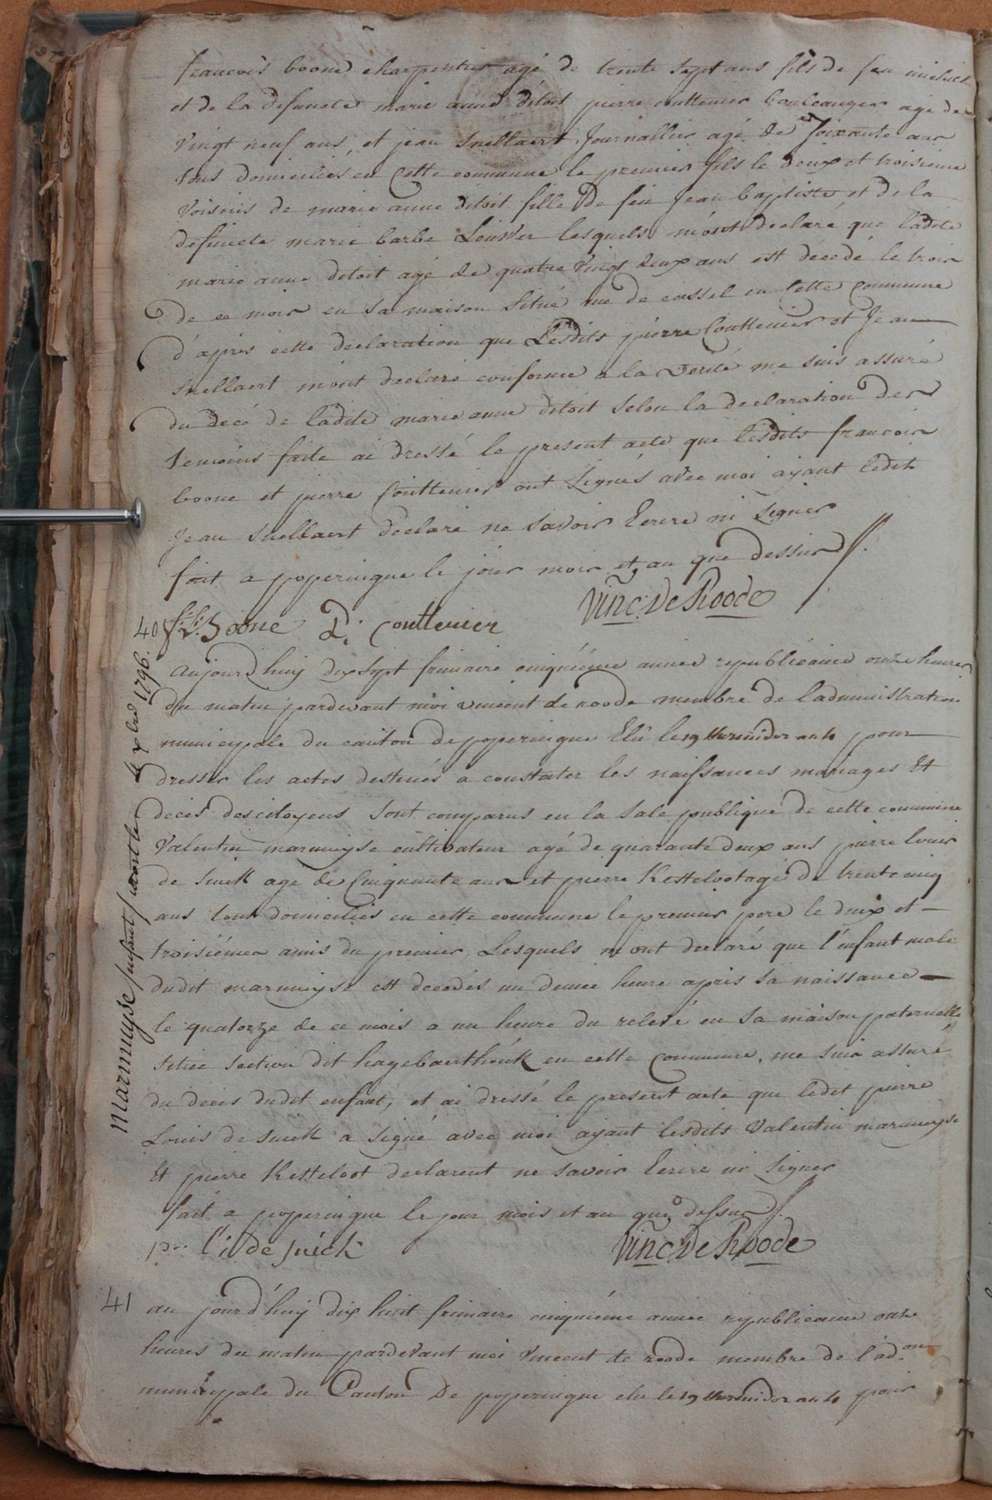 francois boone charpentier agé de trente sept ans fils de feu michiel
et de la defuncte marie anne ditoit pierre couttenier boulcanger agé de
vingt neuf ans, et jean snellaert journallier agé de soixante ans
tous domiciliés en cette commune le premier fils le deux et troisieme
voisins de marie anne ditoit fille de feu jean baptiste et de la
defuncte marie barbe lesquels m'ont declaré que ladite
marie anne ditoit agé de quatre vingt deux ans est décedé le trois
de ce mois en sa maison situé rue de cassel en cette commune
d'apres cette declaration que lesdits pierre Couttenier et Jean
snellaert m'ont declaré conforme a la verité me suis assuré
du decé de ladite marie anne ditoit selon la declaration des
temoins faite ai dressé le present acte que lesdits francois
boone et pierre Couttenier ont signés avec moi ayant ledit
Jean snellaert declaré ne savoir Ecrire ni signer
fait a poperingue le jour mois et an que dessus
vinc: De Roode
40 Boone P: Couttenier
aujourdhuy dix sept frimaire cinquiéme année republicaine onze heures
du matin pardevant moi vincent de roode membre de ladministration
municipale du canton de poperingue Elu le 19 thermidor an 4 pour
dresser les actes destinés a constater les naissances mariages Et
decès des citoyens sont comparus en la sale publique de cette commune
Valentin marmuyse cultivateur agé de quarante deux ans pierre louis
de snick agé de Cinquante ans et pierre Kesteloot agé de trente cinq
ans tous domiciliés en cette commune le premier pere le deux et
troisiémes amis du premier, Lesquels m'ont declaré que l'enfant male
dudit marmuyse est decedés un demie heure après sa naissance
le quatorze de ce mois a un heure du relevé en sa maison paternelle
située section dit hagebaerthouk en cette Commune, me suis assuré
du deces dudit enfant, et ai dressé le present acte que ledit pierre
Louis de snick a signé avec moi ayant lesdits Valentin marmuyse
Et pierre Kesteloot declarent ne savoir Ecrire ni signer
fait a poperingue le jour mois et an que dessus
de snick vinc: De Roode
marmuyse enfant 1796.
41 au jourd'huy dix huit frimaire cinquiéme année republicaine onze
heures du matin pardevant moi vincent de roode membre de l'ad.on
municipale du Canton De poperingue elu le 19 thermidor an 4 pour